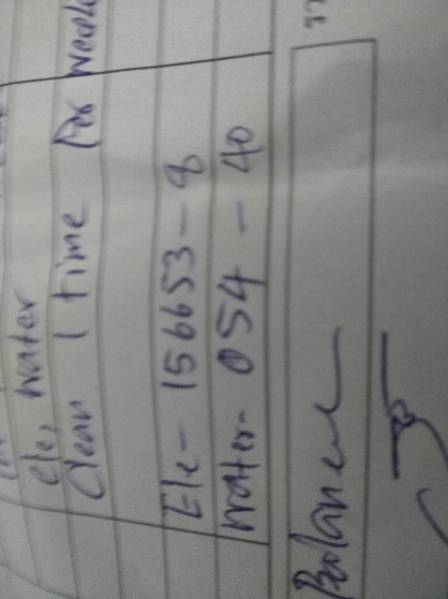 ele, water
Clean 1 time Per week
Ele - 156653 - 8
water - 054 - 40
Balance